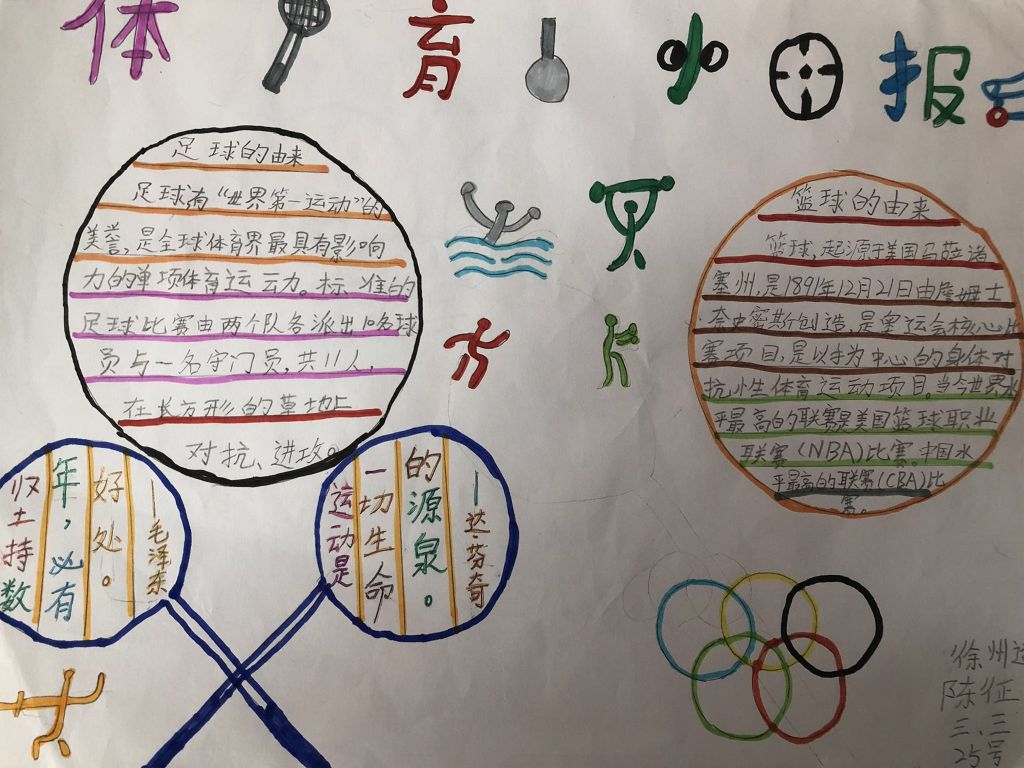 体育小报
足球的由来
足球有“世界第一运动”的
美誉，是全球体育界最具有影响
力的单项体育运动。标准的
足球比赛由两个队各派出10名球
员与一名守门员，共11人，
在长方形的草地上
对抗、进攻。
篮球的由来
篮球，起源于美国马萨诸
塞州，是1891年12月21日由詹姆士
奈史密斯创造，是奥运会核心比
赛项目，是以手为中心的身体对
抗性体育运动项目。当今世界水
平最高的联赛是美国篮球职业
联赛(NBA)比赛。中国水
平最高的联赛(CBA)比
赛。
持数
年，必有
好处。
—毛泽东
运动是
一切生命
的源泉。
—达·芬奇
徐州
陈征
三、三
25号